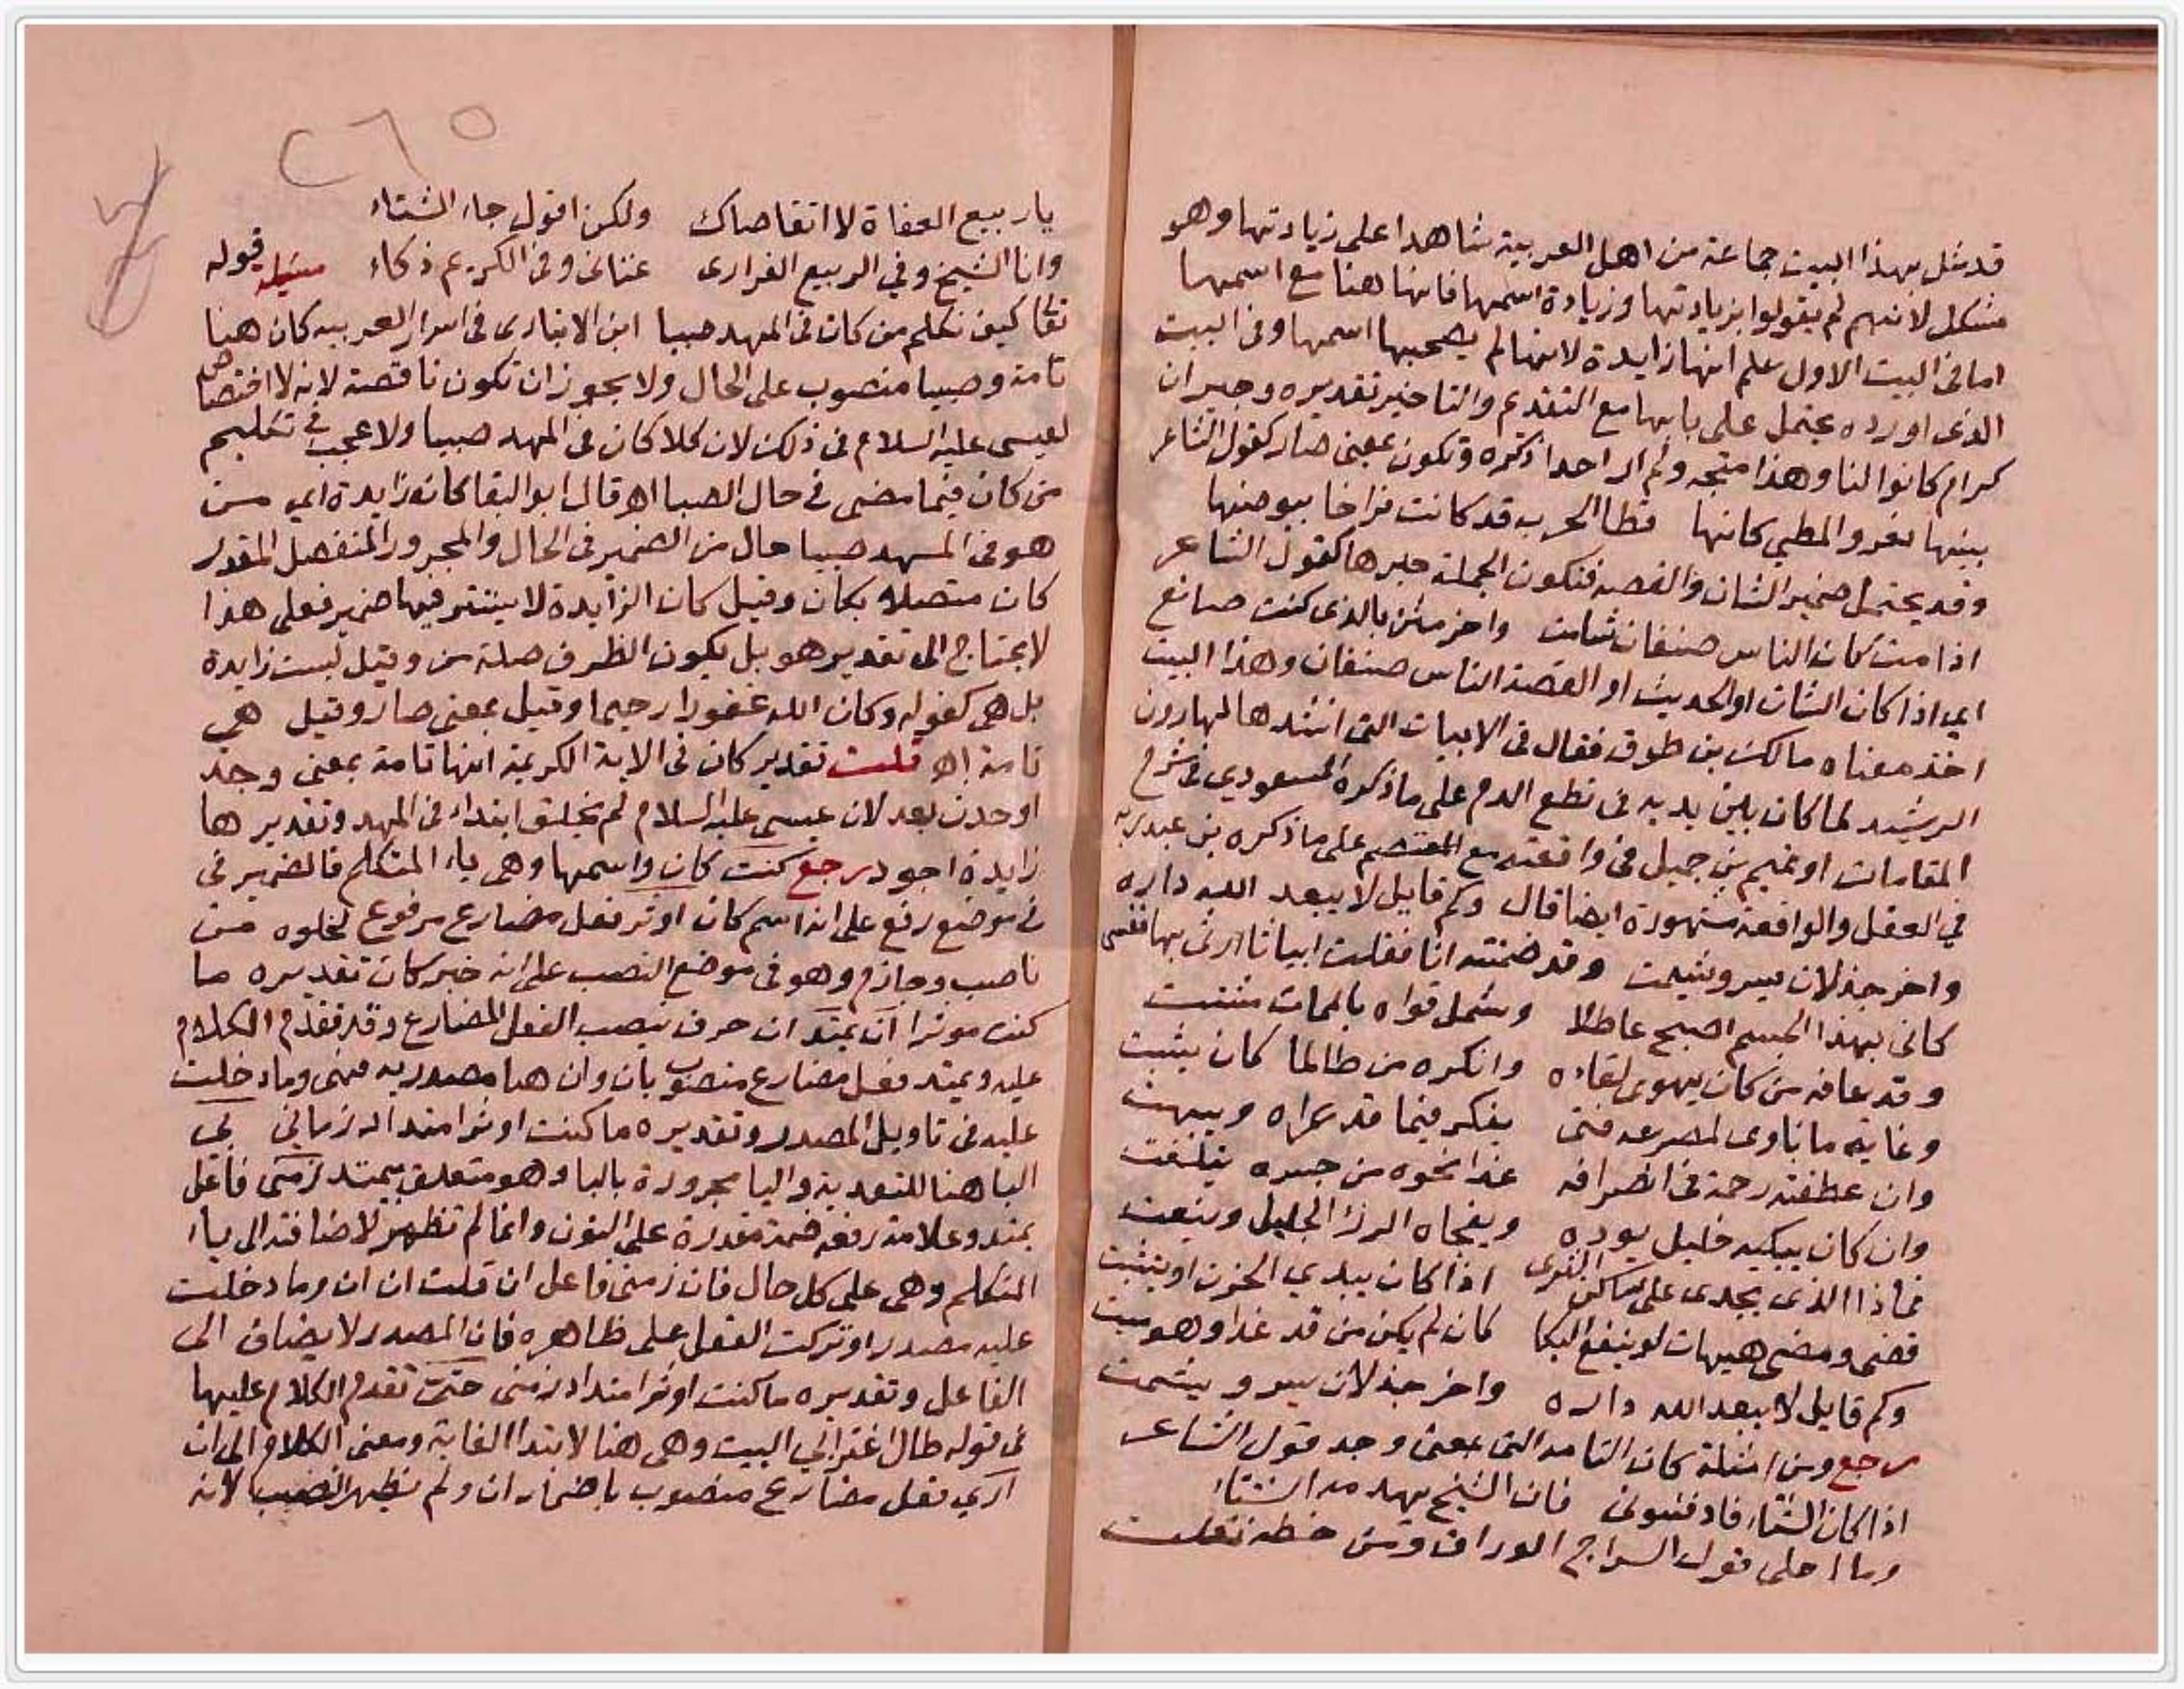 قد مثل بهذا البيت جماعة من اهل العربية شاهدا على زيادتها وهو
مشكل لانهم لم يقولوا بزيادتها وزيادة اسمها فانها هنا مع اسمها
اما فى البيت الاول علم انها زايدة لانها لم يصحبها اسمها وفى البيت
الذى اورده يحتمل على بابها مع التقديم والتاخير تقديره وجيران
كرام كانوا لنا وهذا متجه ولم ار احدا ذكره وتكون بمعنى صار كقول الشاعر
بيتها قفر والمطي كانها قطا الحرب قد كانت فراخا بيوضها
وقد يحتمل ضمير الشان والقصه فتكون الجملة خبرها كقول الشاعر
اذا مت كان الناس صنفان شامت واخر مثن بالذى كنت صانع
اي اذا كان الشان او الحديث او القصة الناس صنفان وهذا البيت
اخذ معناه مالك بن طوق فقال فى الابيات التى انشدها لهارون
الرشيد لما كان بين يديه فى نطع الدم على ما ذكره المسعودي فى شرح
المقامات او تميم بن جميل فى واقعته مع المعتصم على ما ذكره بن عبد ربه
في العقل والواقعة مشهورة ايضا قال وكم قايل لا يبعد الله داره
واخر جذلان يسر ويشمت وقد ضمنته انا فقلت ابياتا ارثى بها نفسى
كانى بهذا الجسم اصبح عاطلا وشمل قواه بالممات مشتت
وقد عافه من كان يهوى لقاءه وانكره من طالما كان يثبت
وغاية ما ناوى لمصرعه فتى يفكر فيما قد عراه ويبهت
وان عطفته رحمة فى انصرافه غدا نحوه من جيده يتلفت
وان كان يبكيه خليل يوده ويفجاه الرزء الجليل ويبغت
فماذا الذى يجدى على ساكن الثرى اذا كان يبدي الحزن او يتثبت
قضى ومضى هيهات لو ينفع البكا كان لم يكن من قد غدا وهو ميت
وكم قايل لا يبعد الله داره واخر جذلان يسر ويشمت
رجع ومن امثلة كان التامه التى بمعنى وجد قول الشاعر
اذا كان الشتاء فادفئونى فان الشيخ يهدمه الشتاء
وما احلى قول السراج الوراق ومن خطه نقلت
٢٦٥
يا ربيع العفاة لا اتقاضاك ولكن اقول جاء الشتاء
وانا الشيخ وفي الربيع الفرارى عنتانى وفى الكريم ذكاء مسئلة قوله
تعا كيف نكلم من كان فى المهد صبيا ابن الانبارى فى اسرار العربيه كان هنا
تامة وصبيا منصوب على الحال ولا يجوز ان تكون ناقصة لانه لا اختصاص
لعيسى عليه السلام فى ذلك لان كلا كان فى المهد صبيا ولا عجب في تكليم
من كان فيما مضى في حال الصبا اهـ قال ابو البقا كان زايدة اي من
هو فى المهد صبيا حال من الضمير فى الحال والمجرور المنفصل المقدر
كان متصلا بكان وقيل كان الزايدة لا يستتر فيها ضمير فعلى هذا
لا يحتاج الى تقدير هو بل يكون الظرف صلة من وقيل ليست زايدة
بل هى كقوله وكان الله غفورا رحيما وقيل بمعنى صار وقيل هى
تامة اهـ قلت تقدير كان فى الاية الكريمة انها تامة بمعنى وجد
او حدث بعد لان عيسى عليه السلام لم يخلق ابتداء فى المهد وتقديرها
زايدة اجود رجع كنت كان واسمها وهى ياء المتكلم فالضمير فى
في موضع رفع على انه اسم كان اوثر فعل مضارع مرفوع لخلوه من
ناصب وجازم وهو فى موضع النصب على انه خبر كان تقديره ما
كنت موثرا ان يمتد ان حرف ينصب الفعل المضارع وقد تقدم الكلام
عليه ويمتد فعل مضارع منصوب بان وان هنا مصدريه فهى وما دخلت
عليه فى تاويل المصدر وتقديره ما كنت اوثر امتداد زمانى بى
البا هنا للتعدية واليا مجرورة بالبا وهو متعلق بيمتد زمنى فاعل
يمتد وعلامة رفعه ضمة مقدرة على النون وانما لم تظهر لاضافته الى ياء
المتكلم وهى على كل حال فان زمنى فاعل ان قلت ان ان وما دخلت
عليه مصدر او تركت الفعل على ظاهره فان المصدر لا يضاف الى
الفاعل وتقديره ما كنت اوثر امتداد زمنى حتى تقدم الكلام عليها
فى قوله طال اغترابي البيت وهى هنا لابتدا الغاية ومعنى الكلام الى ان
ارى فعل مضارع منصوب باضمار ان ولم يظهر النصب لانه